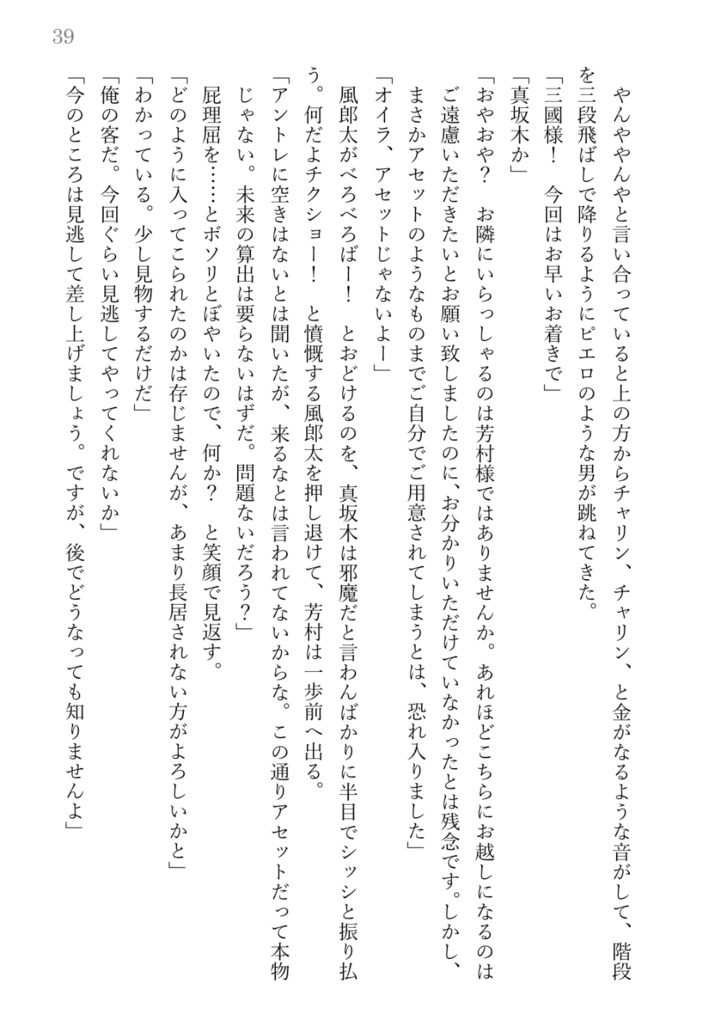 39
　やんややんやと言い合っていると上の方からチャリン、チャリン、と金がなるような音がして、階段
を三段飛ばしで降りるようにピエロのような男が跳ねてきた。
「三國様！　今回はお早いお着きで」
「真坂木か」
「おやおや？　お隣にいらっしゃるのは芳村様ではありませんか。あれほどこちらにお越しになるのは
ご遠慮いただきたいとお願い致しましたのに、お分かりいただけていなかったとは残念です。しかし、
まさかアセットのようなものまでご自分でご用意されてしまうとは、恐れ入りました」
「オイラ、アセットじゃないよー」
　風郎太がべろべろばー！　とおどけるのを、真坂木は邪魔だと言わんばかりに半目でシッシと振り払
う。何だよチクショー！　と憤慨する風郎太を押し退けて、芳村は一歩前へ出る。
「アントレに空きはないとは聞いたが、来るなとは言われてないからな。この通りアセットだって本物
じゃない。未来の算出は要らないはずだ。問題ないだろう？」
　屁理屈を……とボソリとぼやいたので、何か？　と笑顔で見返す。
「どのように入ってこられたのかは存じませんが、あまり長居されない方がよろしいかと」
「わかっている。少し見物するだけだ」
「俺の客だ。今回ぐらい見逃してやってくれないか」
「今のところは見逃して差し上げましょう。ですが、後でどうなっても知りませんよ」